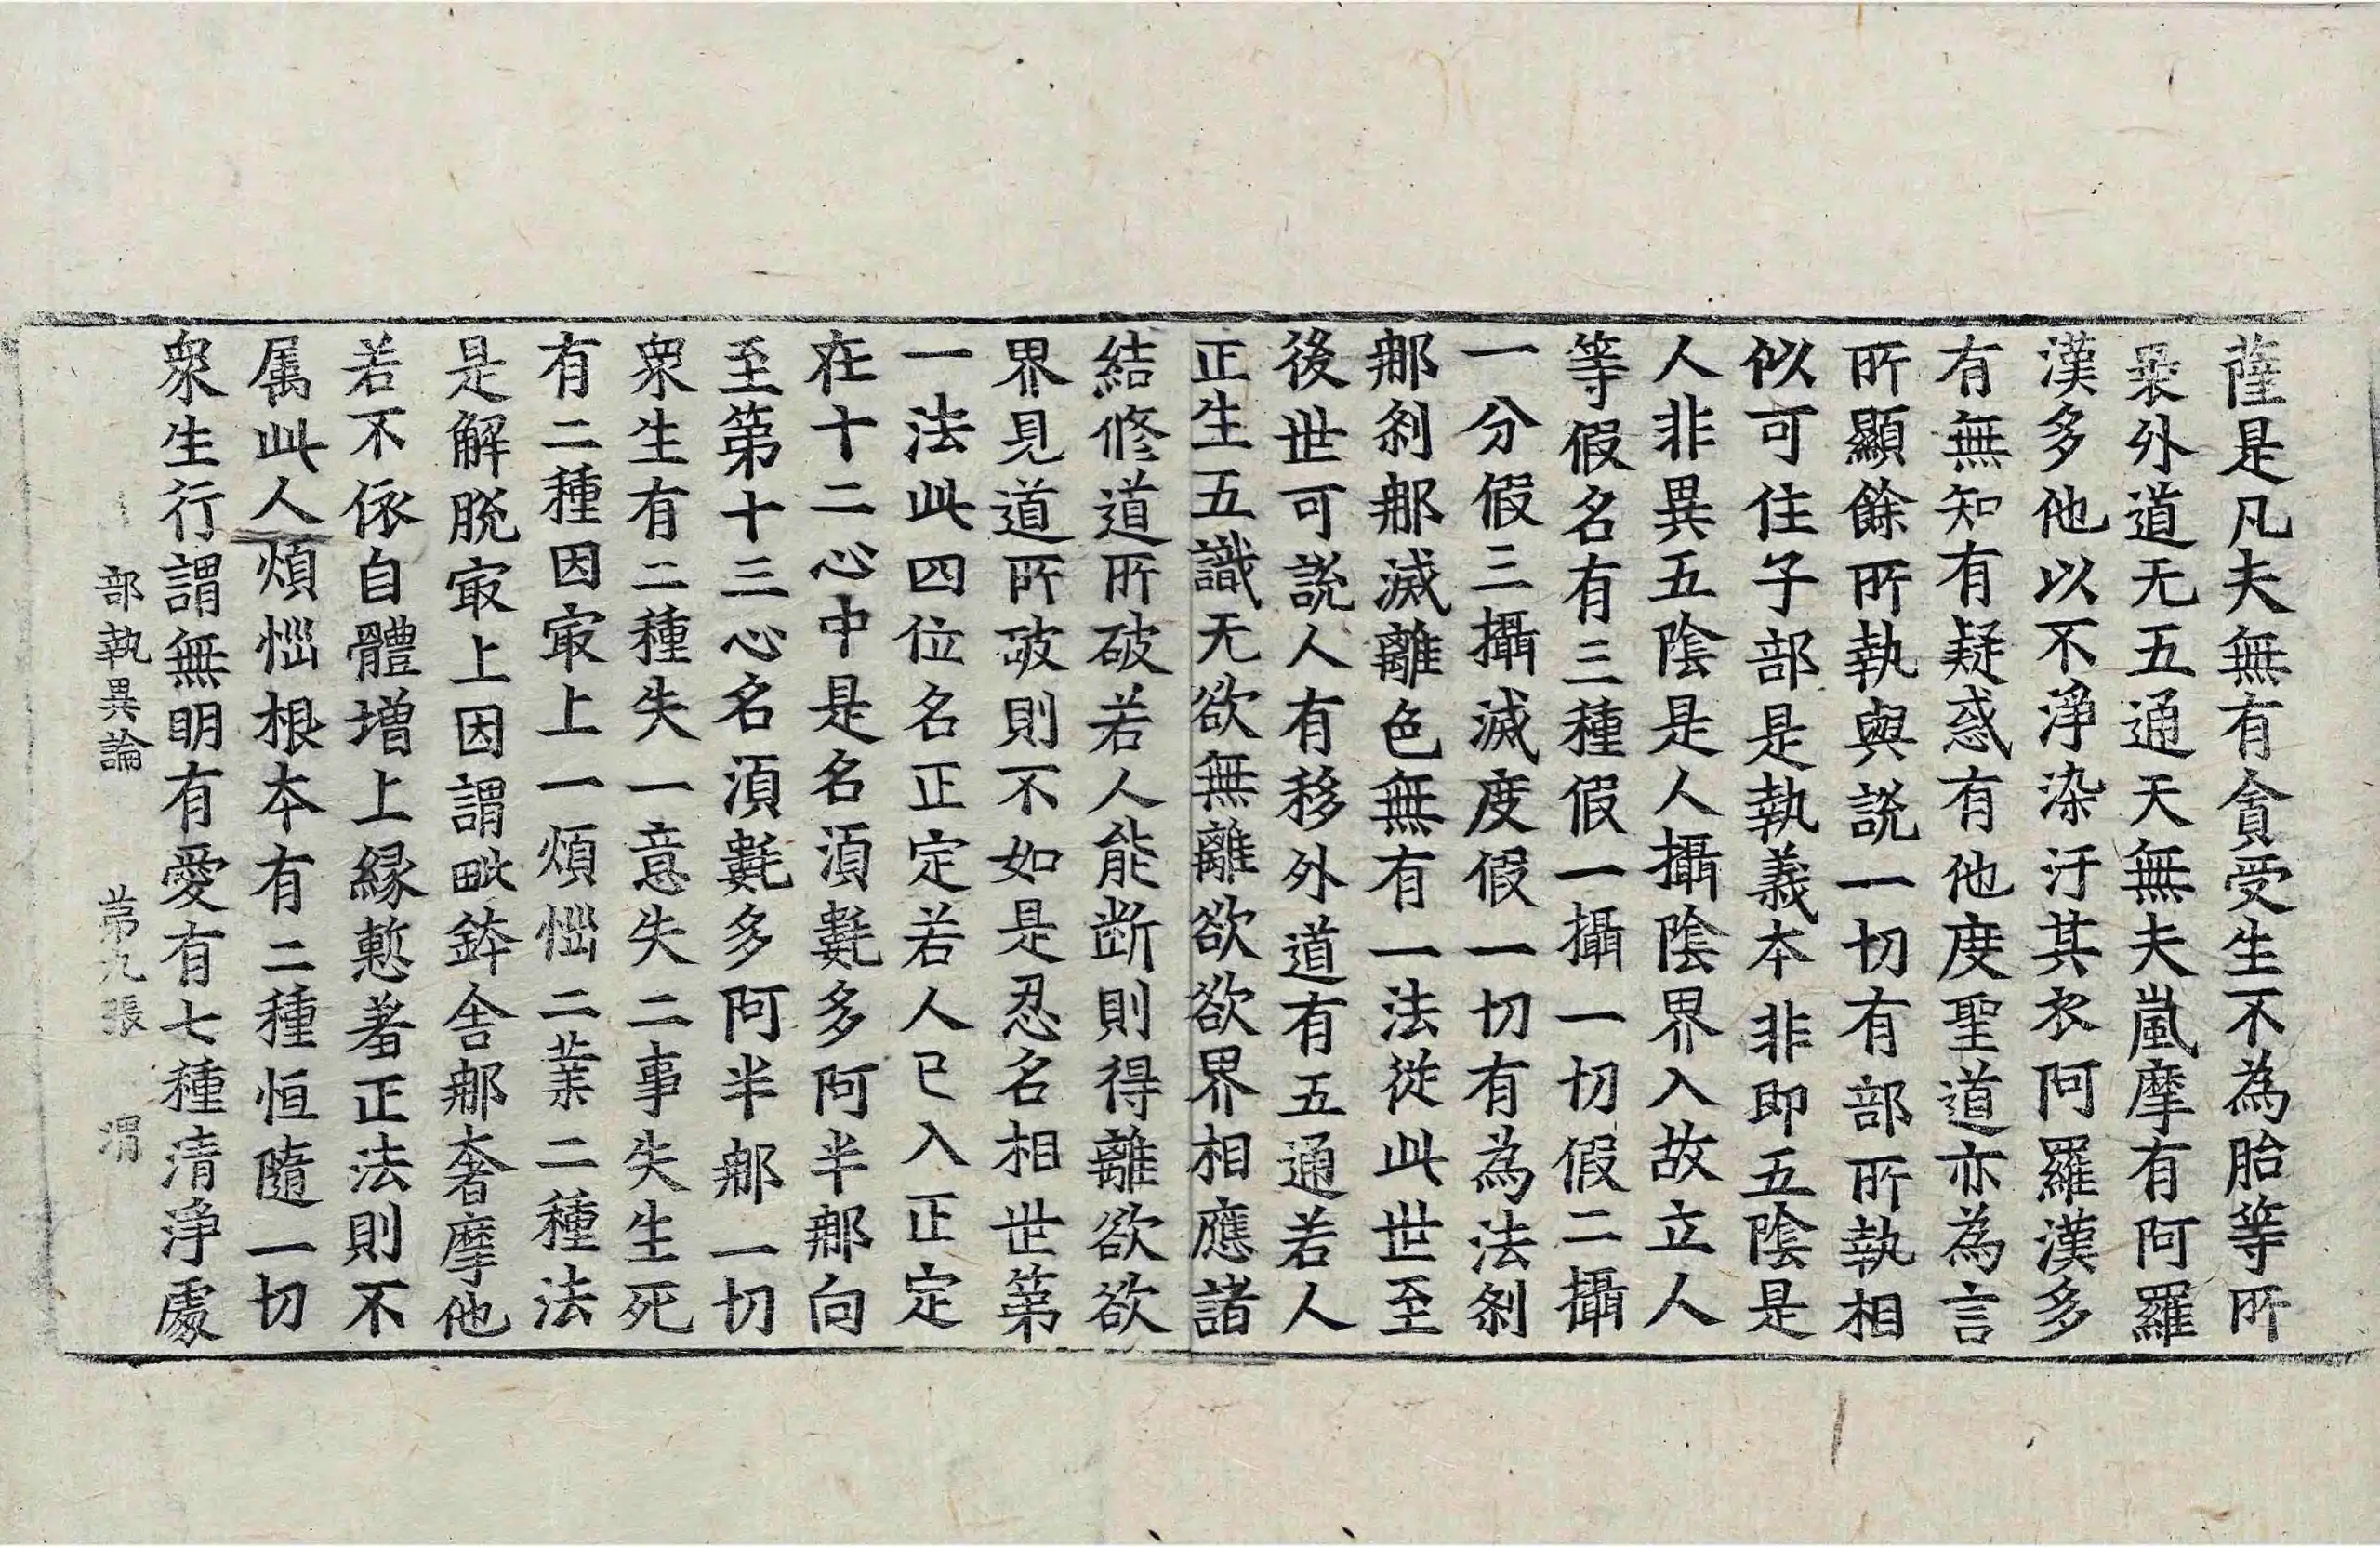 薩是凡夫無有貪受生不為胎等所
褁外道无五通天無夫嵐摩有阿羅
漢多他以不淨染汙其衣阿羅漢多
有無知有疑惑有他度聖道亦為言
所顯餘所執與說一切有部所執相
似可住子部是執義本非即五陰是
人非異五陰是人攝陰界入故立人
等假名有三種假一攝一切假二攝
一分假三攝滅度假一切有為法剎
那剎那滅離色無有一法從此世至
後世可說人有移外道有五通若人
正生五識无欲無離欲欲界相應諸
結修道所破若人能断則得離欲欲
界見道所破則不如是忍名相世第
一法此四位名正定若人已入正定
在十二心中是名湏氀多阿半那向
至第十三心名湏氀多阿半那一切
衆生有二種失一意失二事失生死
有二種因㝡上一煩惱二業二種法
是解脫㝡上因謂毗鉢舎那奢摩他
若不依自體增上緣慙羞正法則不
属此人煩惱根本有二種恒隨一切
衆生行謂無明有愛有七種清淨處
部執異論 苐九張 渭